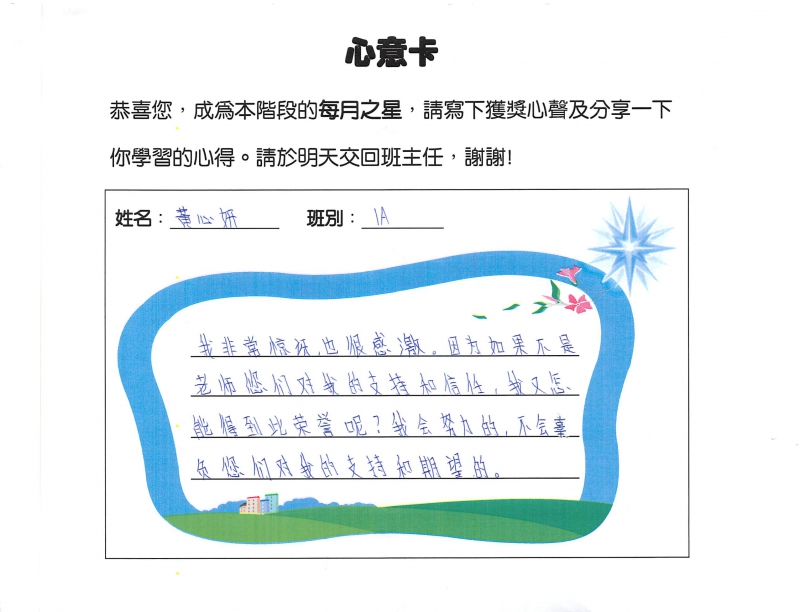 心意卡
恭喜您，成為本階段的每月之星，請寫下獲獎心聲及分享一下
你學習的心得。請於明天交回班主任，謝謝!
姓名：黃心妍 班別：1A
我非常惊讶,也很感激。因为如果不是
老师您们对我的支持和信任，我又怎
能得到此荣誉呢？我会努力的，不会辜
负您们对我的支持和期望的。